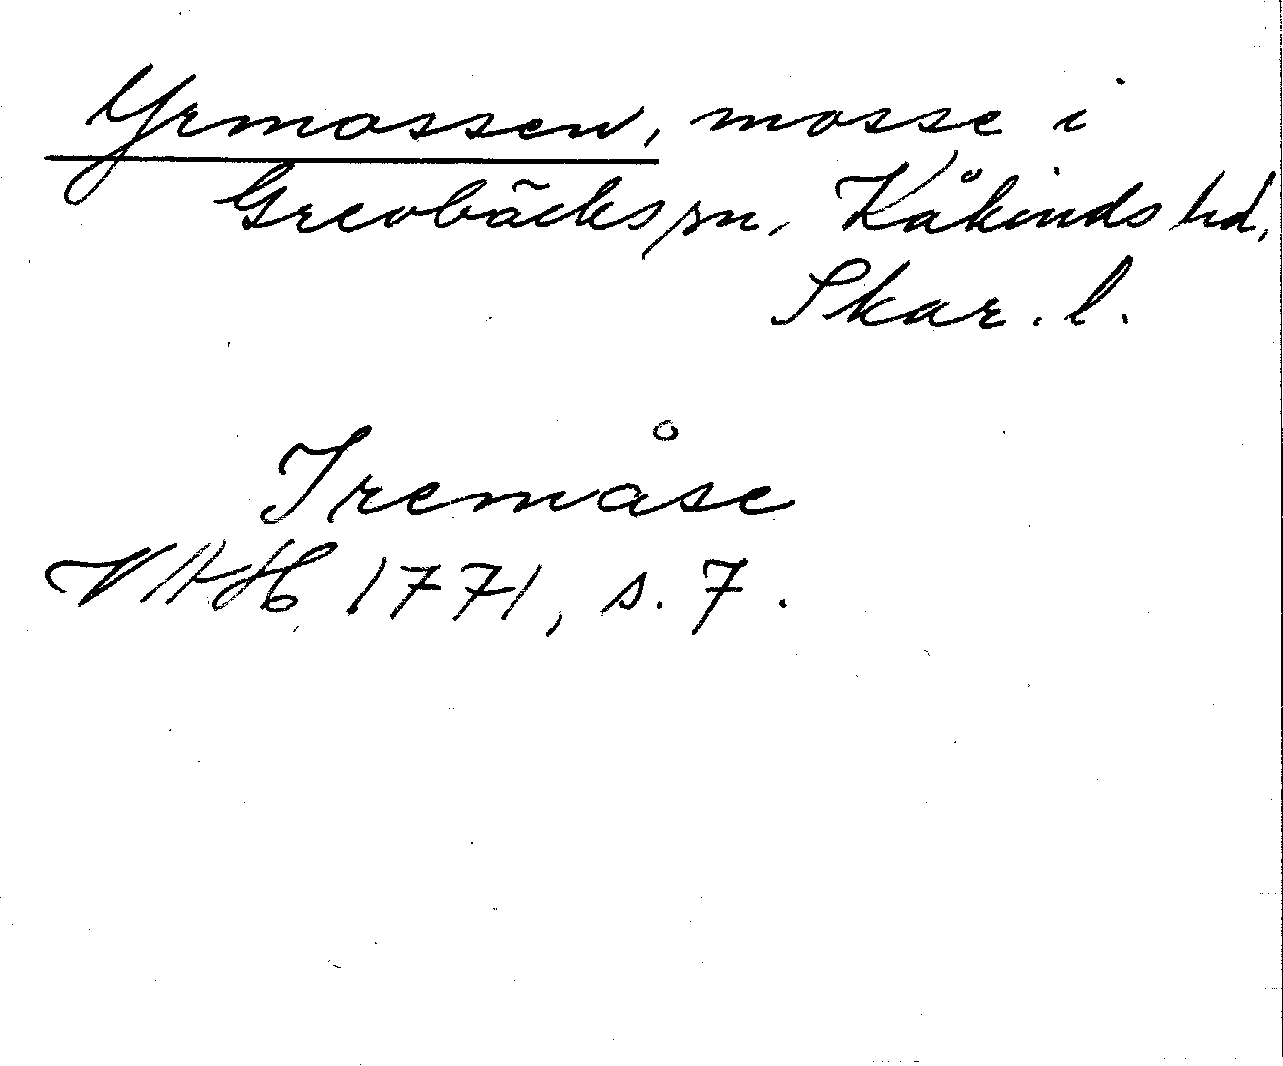 Yrmossen, mosse i
Grevbäcks sn, Kåkinds hd,
Skar. l.
Iremåse
VAH 1771, s. 7.